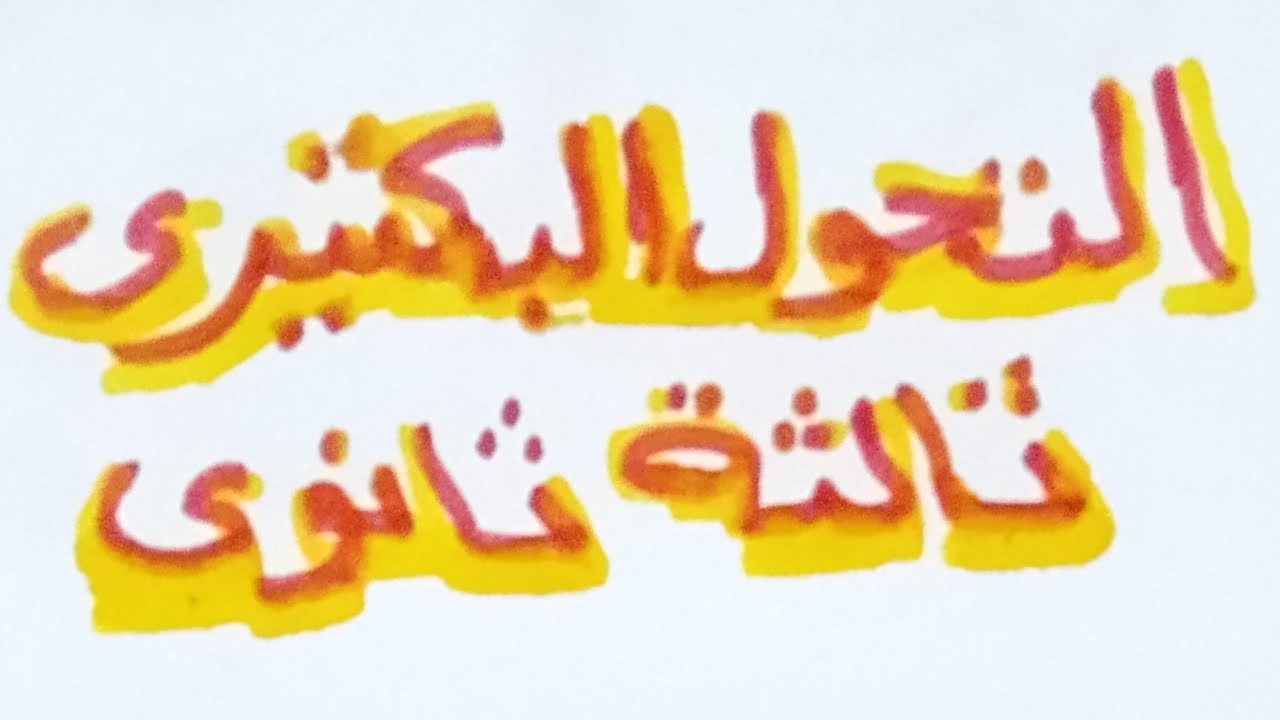 التحول البكتيرى
ثالثة ثانوى